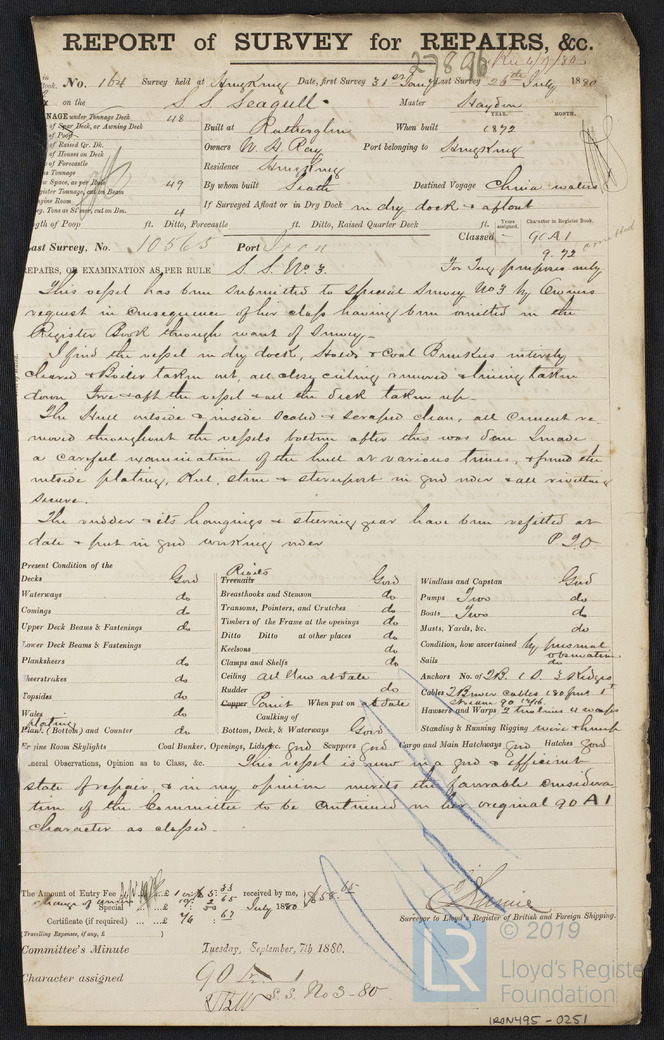 REPORT of SURVEY for REPAIRS, &c.
27896
No. 164 Survey held at Hong Kong Date, first Survey 31st Last Survey 26th July 1880
on the S. S. Seagull Master Haydon
TONNAGE under Tonnage Deck 48
YEAR. MONTH.
of Spar Deck, or Awning Deck
of Poop
Built at Rutherglen When built 1872
of Raised Qr. Dk.
of Houses on Deck
Owners W. H. Ray Port belonging to Hong Kong
of Forecastle
Tonnage
Residence Hong Kong
Space, as per Rule 49
By whom built Seath Destined Voyage China waters
Register Tonnage, cut on Beam
Engine Room
If Surveyed Afloat or in Dry Dock in dry dock & afloat
Reg. Tons as St'mer, cut on Bm. 4
Length of Poop ft. Ditto, Forecastle ft. Ditto, Raised Quarter Deck ft.
Years assigned. Character in Register Book.
Last Survey, No. 10565 Port Iron
Classed 90 A1
9.72
omitted
REPAIRS, OR EXAMINATION AS PER RULE S. S. No 3. For Tug purposes only
This vessel has been submitted to Special Survey No 3 by Owners
request in consequence of her class having been omitted in the
Register Book through want of Survey.
I find the vessel in dry dock, Holds & Coal Bunkers entirely
cleared & Boiler taken out, all close ceiling removed & lining taken
down Fore & aft the vessel & all the deck taken up.
The Hull outside & inside scaled & scraped clean, all cement re
moved throughout the vessels bottom after this was done I made
a careful examination of the hull at various times, & found the
outside plating, Keel, stem & sternpost in good order & all rivetting
secure.
The rudder & its hangings & steering gear have been refitted at
date & put in good working order P.T.O
Present Condition of the
Decks Good
Waterways do
Comings do
Upper Deck Beams & Fastenings do
Lower Deck Beams & Fastenings
Planksheers do
Sheerstrakes do
Topsides do
Wales do
plating
Plank (Bottom) and Counter do
Rivets
Treenails Good
Breasthooks and Stemson do
Transoms, Pointers, and Crutches do
Timbers of the Frame at the openings do
Ditto Ditto at other places do
Keelsons do
Clamps and Shelfs do
Ceiling all New at date
Rudder do
Copper Paint When put on at date
Caulking of
Bottom, Deck, & Waterways Good
Windlass and Capstan Good
Pumps Two do
Boats Two do
Masts, Yards, &c. do
Condition, how ascertained by personal observation
Sails do
Anchors No. of 2 B. 1 S. 2 Kedges
Cables 2 Bower Cables
Hawsers and Warps
Standing & Running Rigging wire & hemp
Engine Room Skylights Coal Bunker, Openings, Lids, &c. good Scuppers good Cargo and Main Hatchways good Hatches good
General Observations, Opinion as to Class, &c. This vessel is now in a good & efficient
state of repair, & in my opinion merits the favorable considera
tion of the Committee to be continued in her original 90 A1
character as classed.
The Amount of Entry Fee
received by me,
Special
July 1880
Certificate (if required)
(Travelling Expenses, if any, £ )
Surveyor to Lloyd's Register of British and Foreign Shipping.
Committee's Minute Tuesday, September, 7th 1880.
Character assigned 90
S. S. No 3 - 80
© 2019
LR
Lloyd's Register
Foundation
IRON495-0251